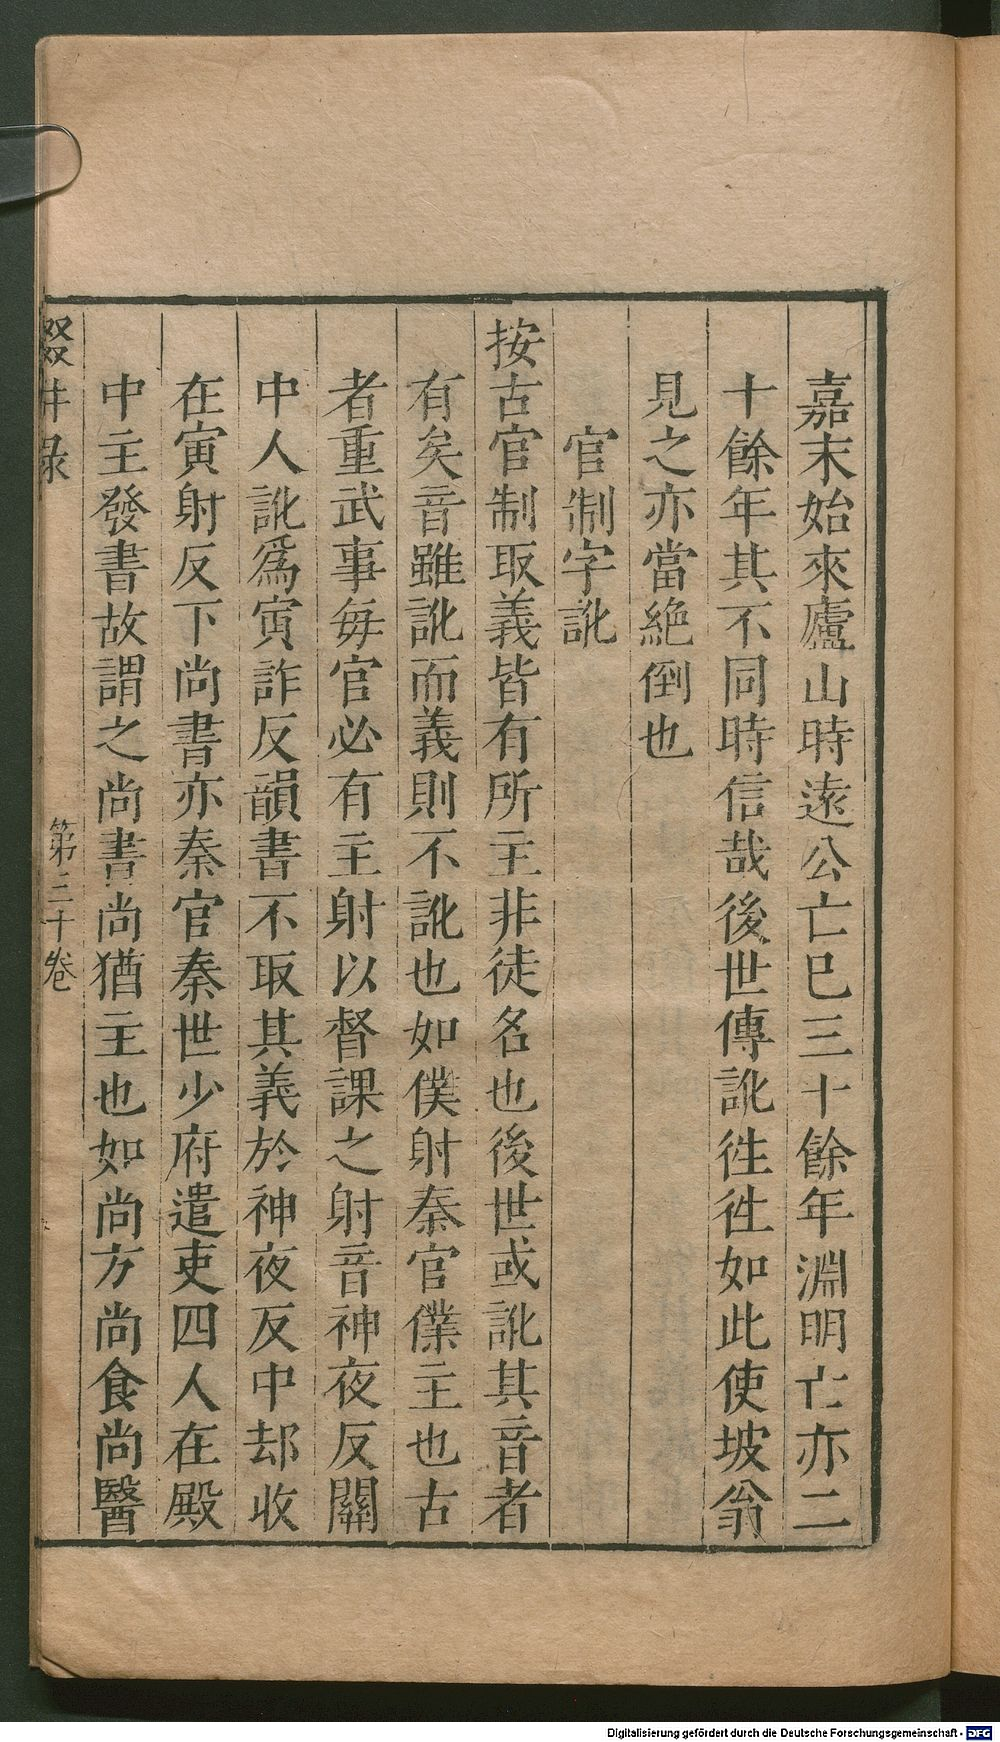 嘉末始來廬山時遠公亡巳三十餘年淵明亡亦二
十餘年其不同時信哉後世傳訛徃徃如此使坡翁
見之亦當絶倒也
官制字訛
按古官制取義皆有所主非徒名也後世或訛其音者
有矣音雖訛而義則不訛也如僕射秦官僕主也古
者重武事毎官必有主射以督課之射音神夜反關
中人訛爲寅詐反韻書不取其義於神夜反中却收
在寅射反下尚書亦秦官秦世少府遣吏四人在殿
中主發書故謂之尚書尚猶主也如尚方尚食尚醫
第三十卷
Digitalisierung gefördert durch die Deutsche Forschungsgemeinschaft - DFG